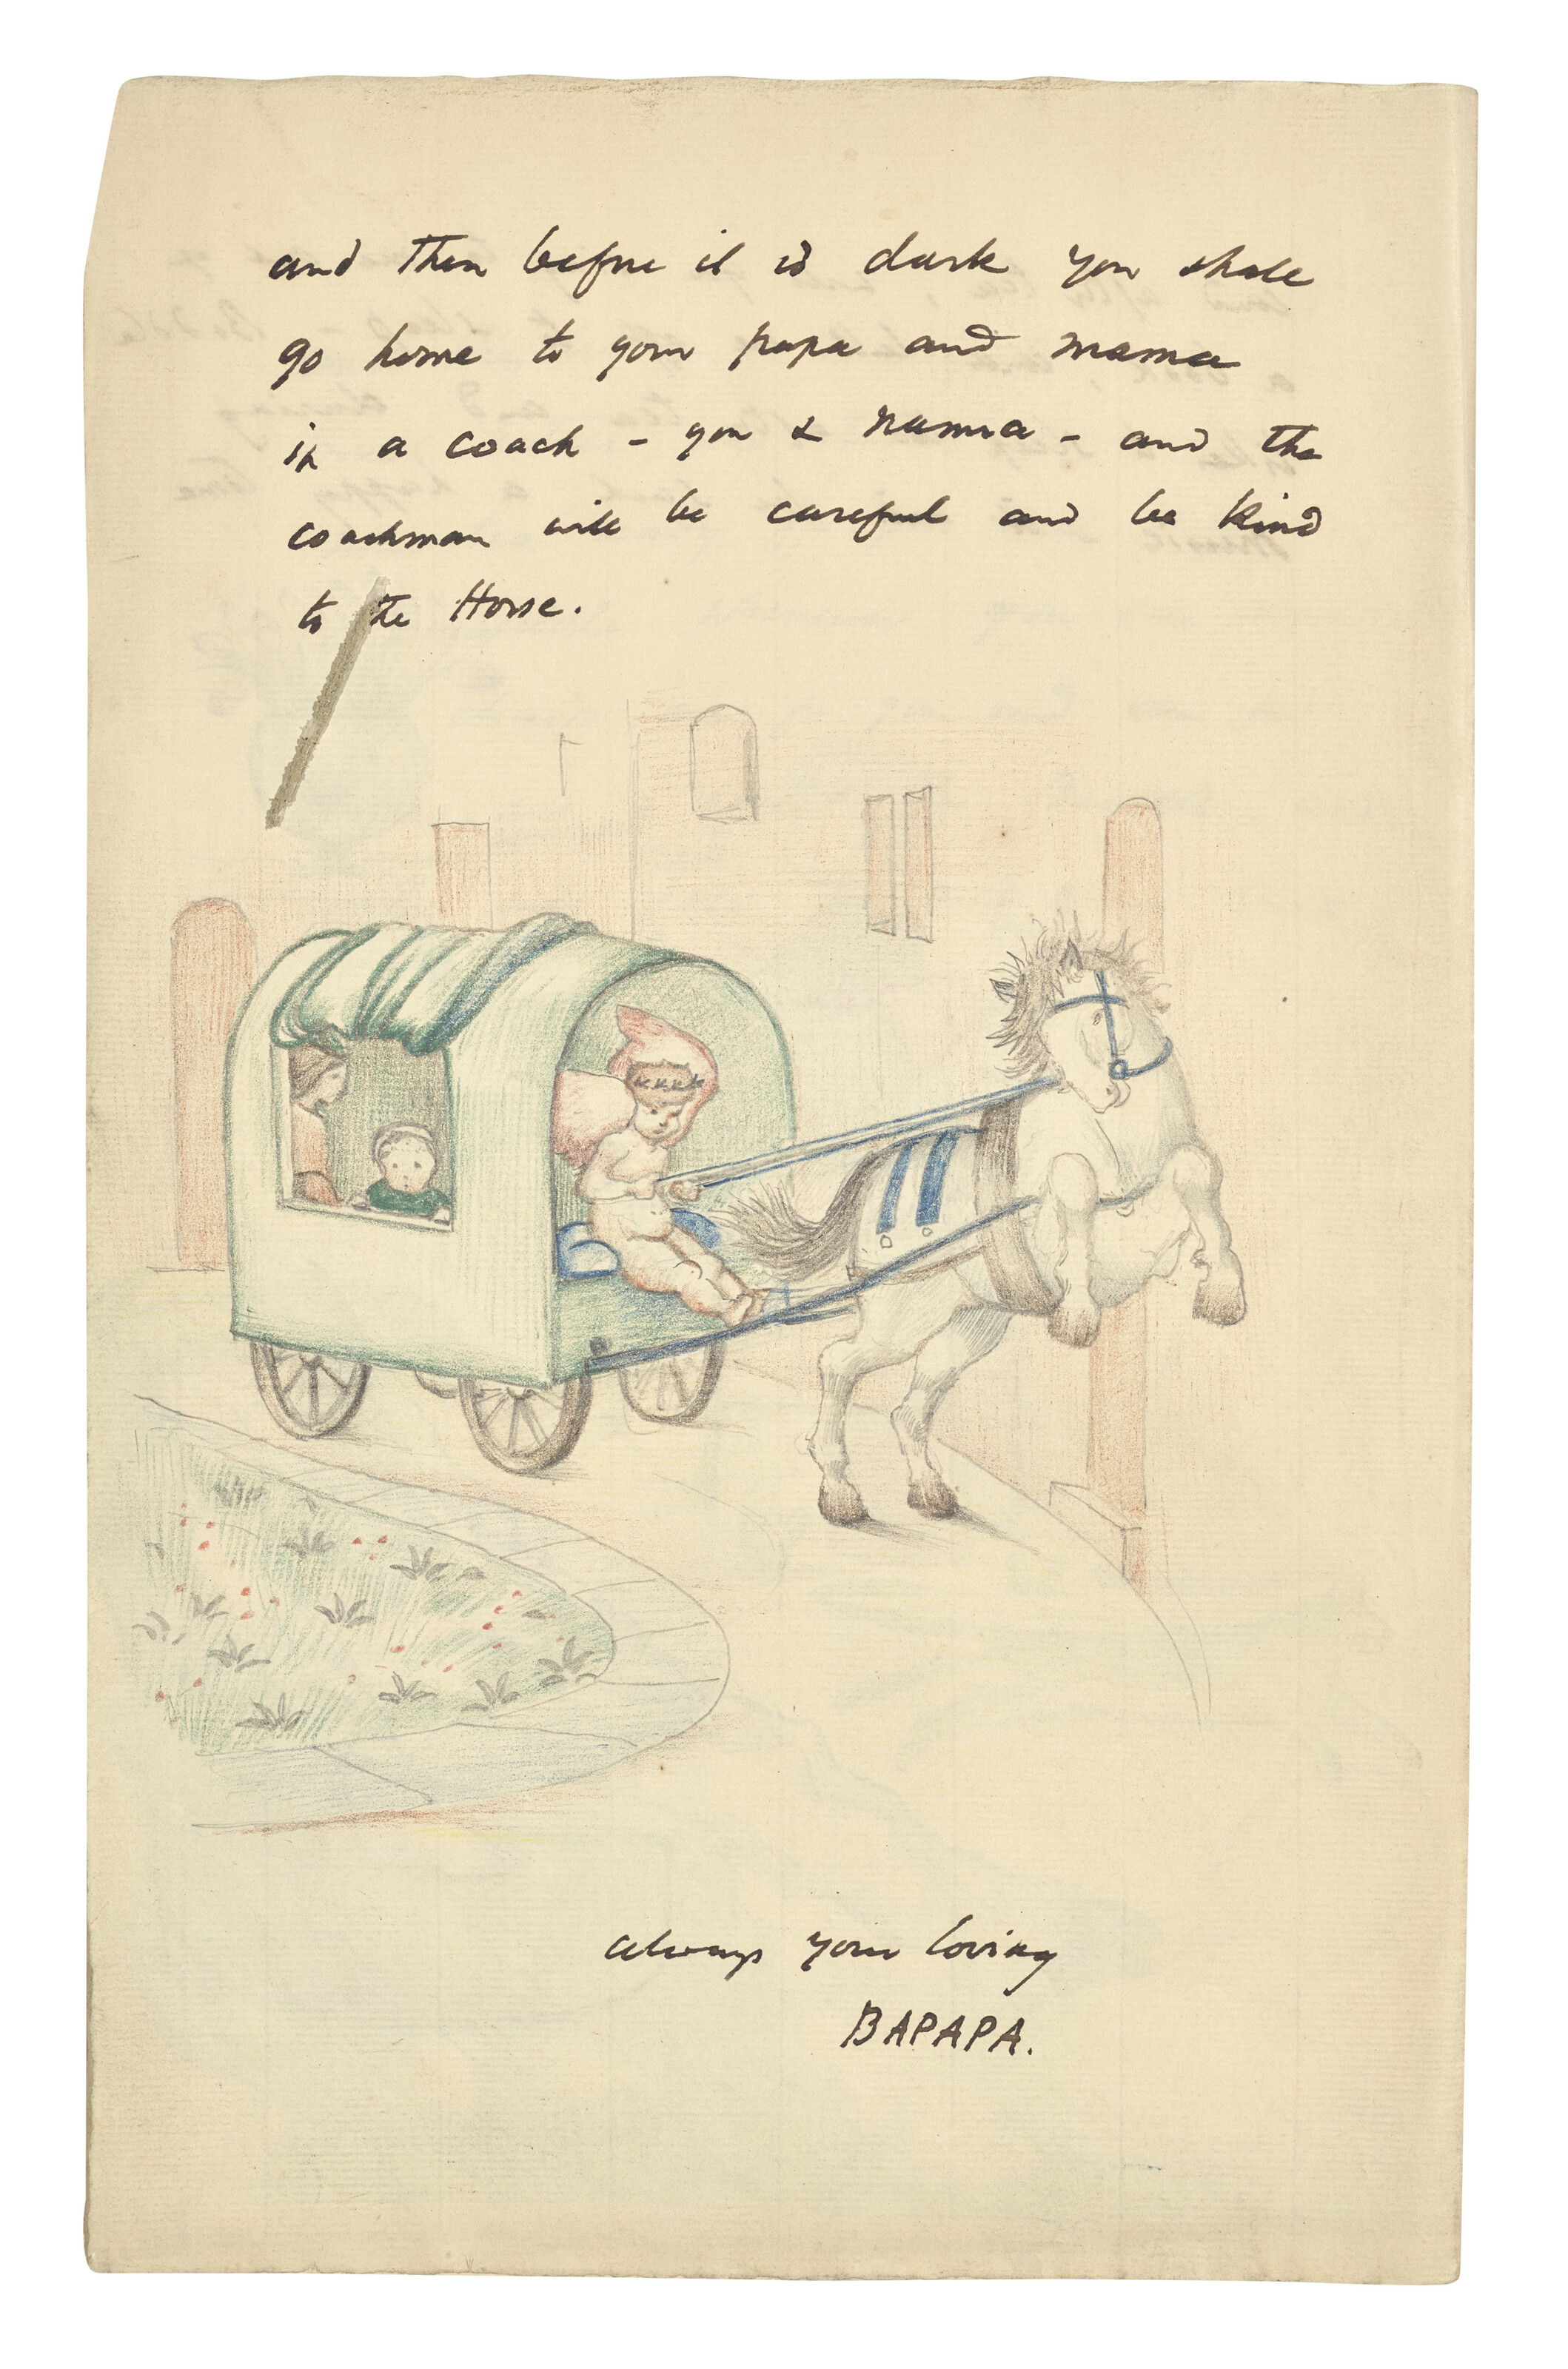 and then before it is dark you shall
go home to your papa and mama
in a coach - you & nanna - and the
coachman will be careful and be kind
to the Horse.
always your loving
BAPAPA.